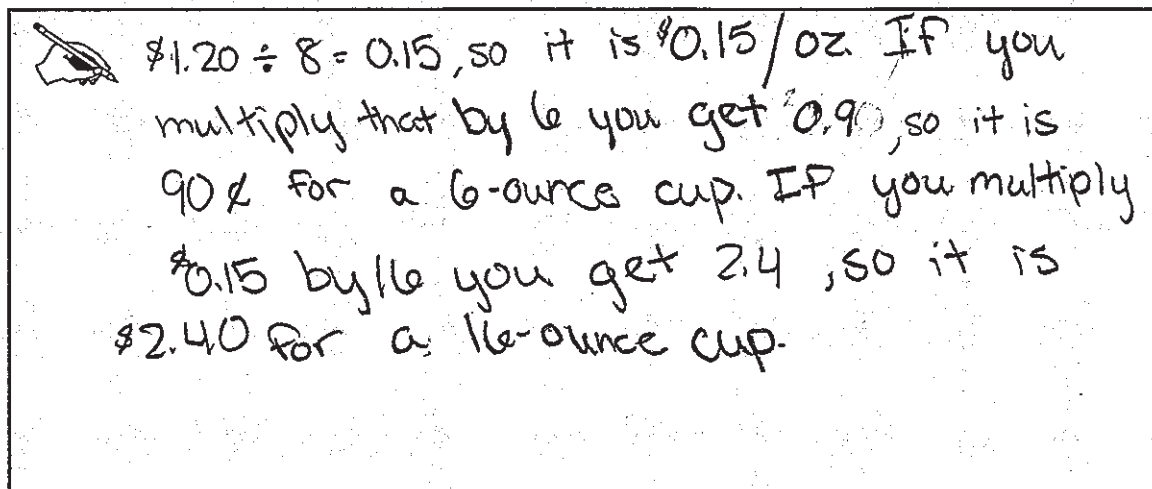 $1.20 ÷ 8 = 0.15, so it is $0.15/oz. If you
multiply that by 6 you get $0.90, so it is
90¢ for a 6-ounce cup. If you multiply
$0.15 by 16 you get 2.4, so it is
$2.40 for a 16-ounce cup.